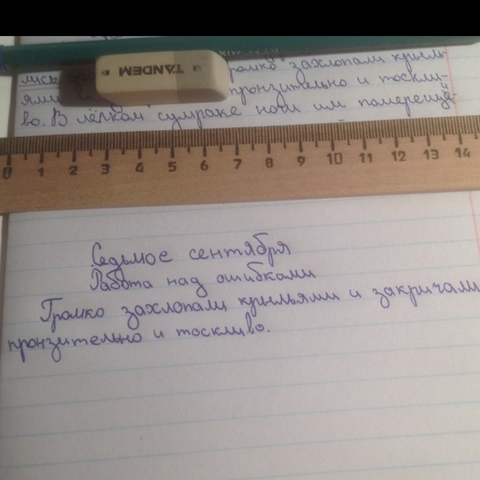 громко захлопали крыль-
ями пронзительно и тоскли-
во. В лёгком сумраке ночи им померещи-
TANDEM
0 1 2 3 4 5 6 7 8 9 10 11 12 13 14
Седьмое сентября
Работа над ошибками
Громко захлопали крыльями и закричали
пронзительно и тоскливо.